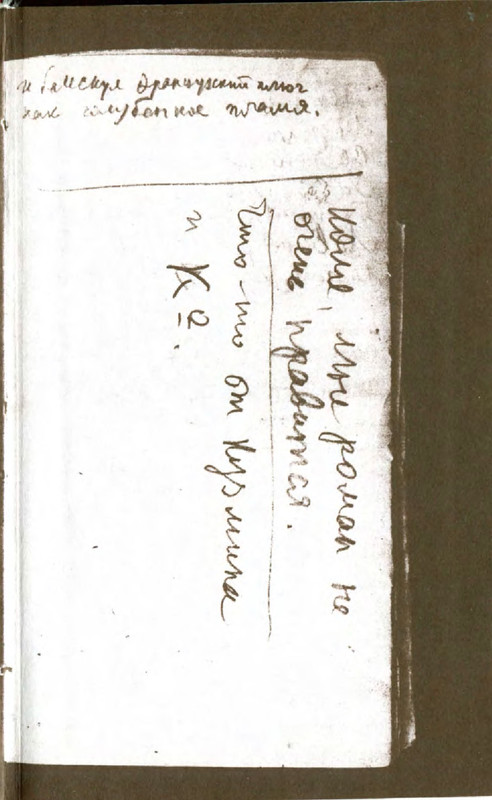 и блеснул французский плюш
как голубенькое пламя.
Коля, мне роман не
очень нравится.
Что-то от Кузмина
и Кº.